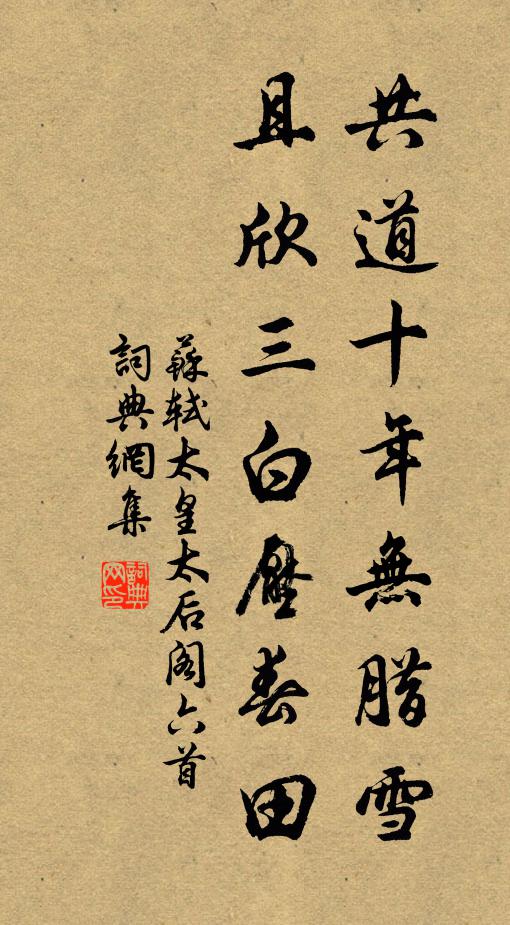 共道十年無腊雪
且欣三白壓春田
蘇軾太皇太后阁六首
詞典網集
詞典網印